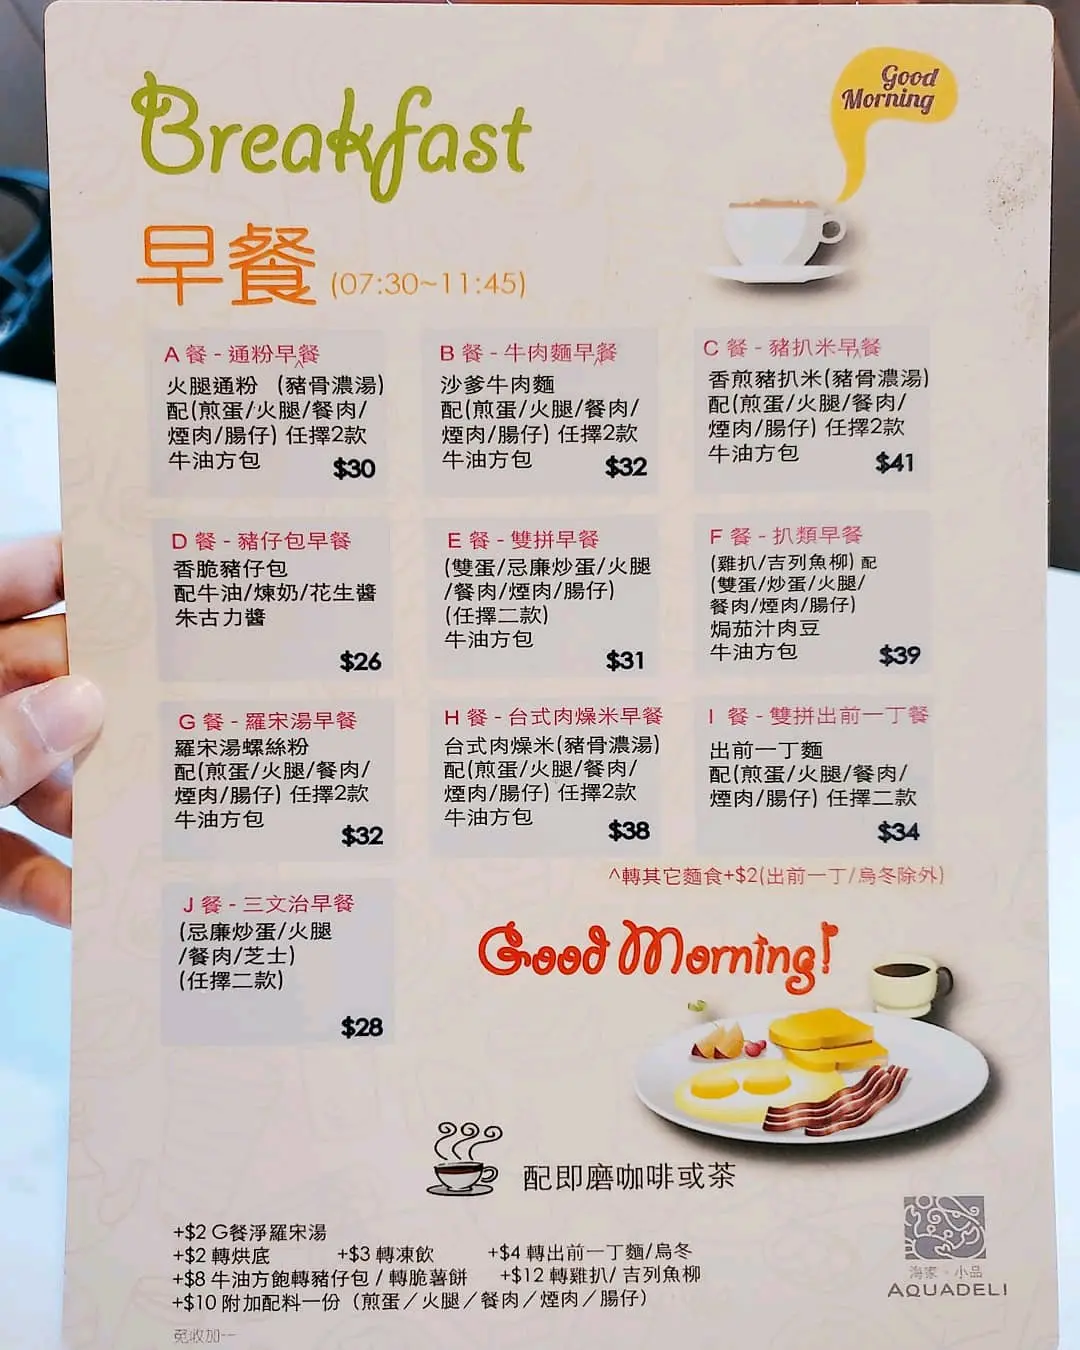 Good
Morning
Breakfast
早餐 (07:30~11:45)
A 餐 - 通粉早餐^
火腿通粉 (豬骨濃湯)
配(煎蛋/火腿/餐肉/
煙肉/腸仔) 任擇2款
牛油方包
$30
B 餐 - 牛肉麵早餐^
沙爹牛肉麵
配(煎蛋/火腿/餐肉/
煙肉/腸仔) 任擇2款
牛油方包
$32
C 餐 - 豬扒米早餐^
香煎豬扒米(豬骨濃湯)
配(煎蛋/火腿/餐肉/
煙肉/腸仔) 任擇2款
牛油方包
$41
D 餐 - 豬仔包早餐
香脆豬仔包
配牛油/煉奶/花生醬
朱古力醬
$26
E 餐 - 雙拼早餐
(雙蛋/忌廉炒蛋/火腿
/餐肉/煙肉/腸仔)
(任擇二款)
牛油方包
$31
F 餐 - 扒類早餐
(雞扒/吉列魚柳) 配
(雙蛋/炒蛋/火腿/
餐肉/煙肉/腸仔)
焗茄汁肉豆
牛油方包
$39
G 餐 - 羅宋湯早餐
羅宋湯螺絲粉
配(煎蛋/火腿/餐肉/
煙肉/腸仔) 任擇2款
牛油方包
$32
H 餐 - 台式肉燥米早餐
台式肉燥米(豬骨濃湯)
配(煎蛋/火腿/餐肉/
煙肉/腸仔) 任擇2款
牛油方包
$38
I 餐 - 雙拼出前一丁餐
出前一丁麵
配(煎蛋/火腿/餐肉/
煙肉/腸仔) 任擇二款
$34
^轉其它麵食+$2(出前一丁/烏冬除外)
J 餐 - 三文治早餐
(忌廉炒蛋/火腿
/餐肉/芝士)
(任擇二款)
$28
Good Morning!
配即磨咖啡或茶
+$2 G餐淨羅宋湯
+$2 轉烘底 +$3 轉凍飲 +$4 轉出前一丁麵/烏冬
+$8 牛油方飽轉豬仔包 / 轉脆薯餅 +$12 轉雞扒/ 吉列魚柳
+$10 附加配料一份（煎蛋／火腿／餐肉／煙肉／腸仔）
免收加一
海家·小品
AQUADELI